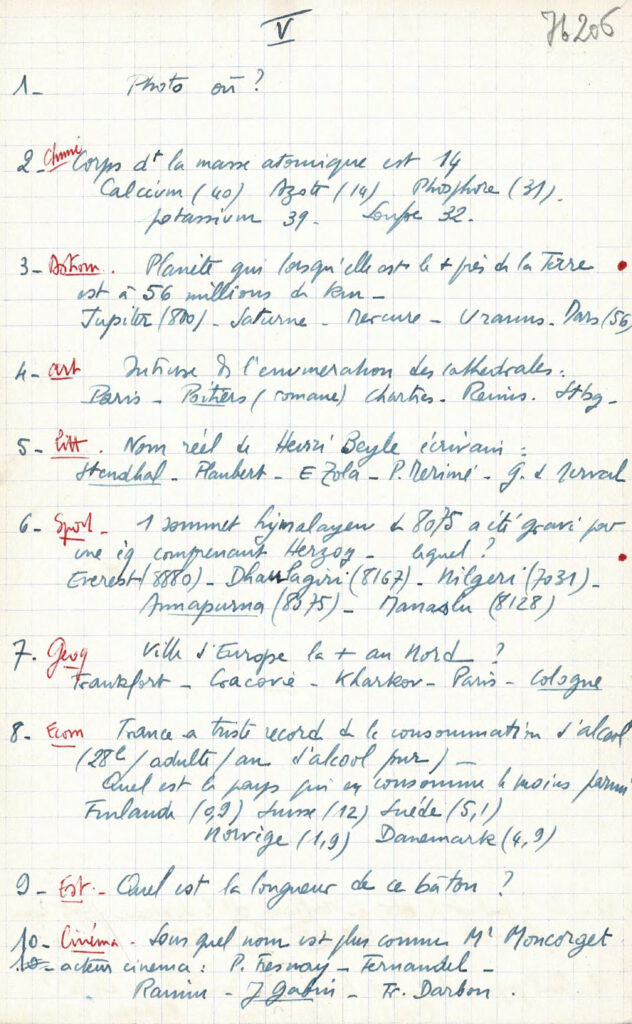 V
76206
1- Photo où ?
2- Chimie Corps dt la masse atomique est 14
Calcium (40) Azote (14) Phosphore (31).
potassium 39. Soufre 32.
3- Astron. Planète qui lorsqu'elle est le + près de la Terre
est à 56 millions de km -
Jupiter (800) - Saturne - Mercure - Uranus - Mars (56
4- art Intruse ds l'enumeration des cathédrales :
Paris - Poitiers (romane) Chartres - Reims. Stbg -
5- litt. Nom réel de Henri Beyle écrivain :
Stendhal - Flaubert - E Zola - P. Merimé - G. d Nerval
6- Sport - 1 sommet hymalayen de 8075 a été gravi par
une éq comprenant Herzog - lequel ?
Everest (8880) - Dhaulagiri (8167) - Nilgeri (7031) -
Annapurna (8075) - Manaslu (8128)
7. Geog Ville d'Europe la + au Nord ?
Frankfort - Cracovie - Kharkov - Paris - Cologne
8- Econ France a triste record de la consommation d'alcool
(28l / adulte / an d'alcool pur) -
Quel est le pays qui en consomme le moins parmi
Finlande (0,9) Suisse (12) Suéde (5,1)
Norvège (1,9) Danemark (4,9)
9- Est. - Quel est la longueur de ce bâton ?
10- Cinéma - Sous quel nom est plus connu Mr Moncorget
10- acteur cinema : P. Fresnay - Fernandel -
Raimu - J Gabin - Fr. Darbon.